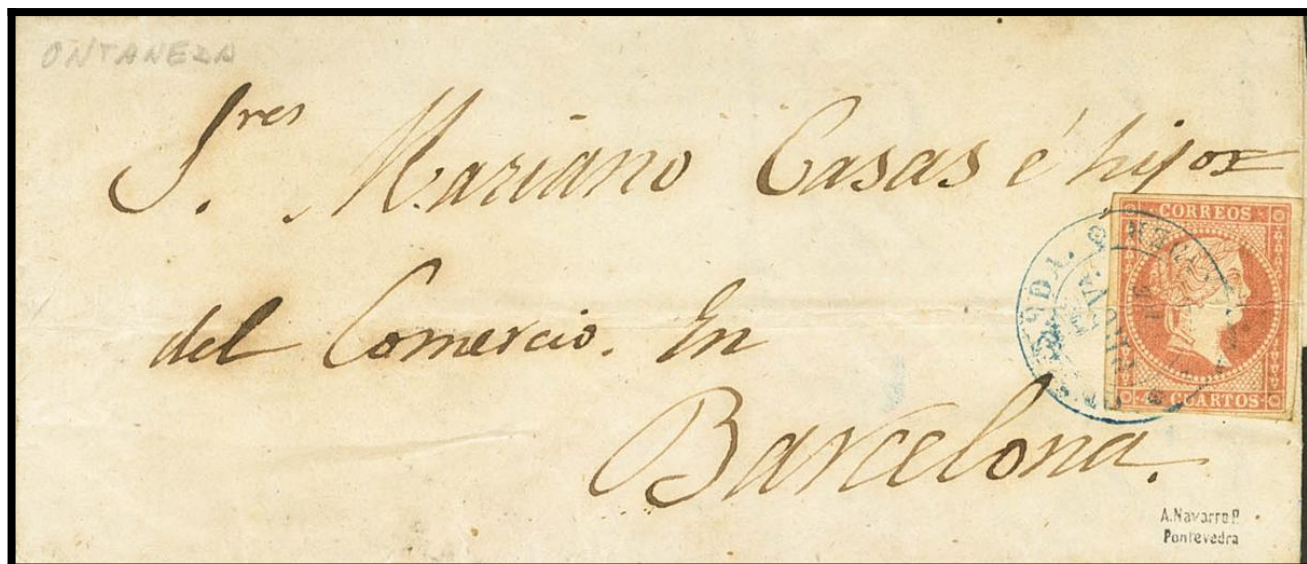 ONTANEDA
Sres. Mariano Casas é hijos
del Comercio. En
Barcelona.
CORREOS
4 CUARTOS
A.Navarro P.
Pontevedra